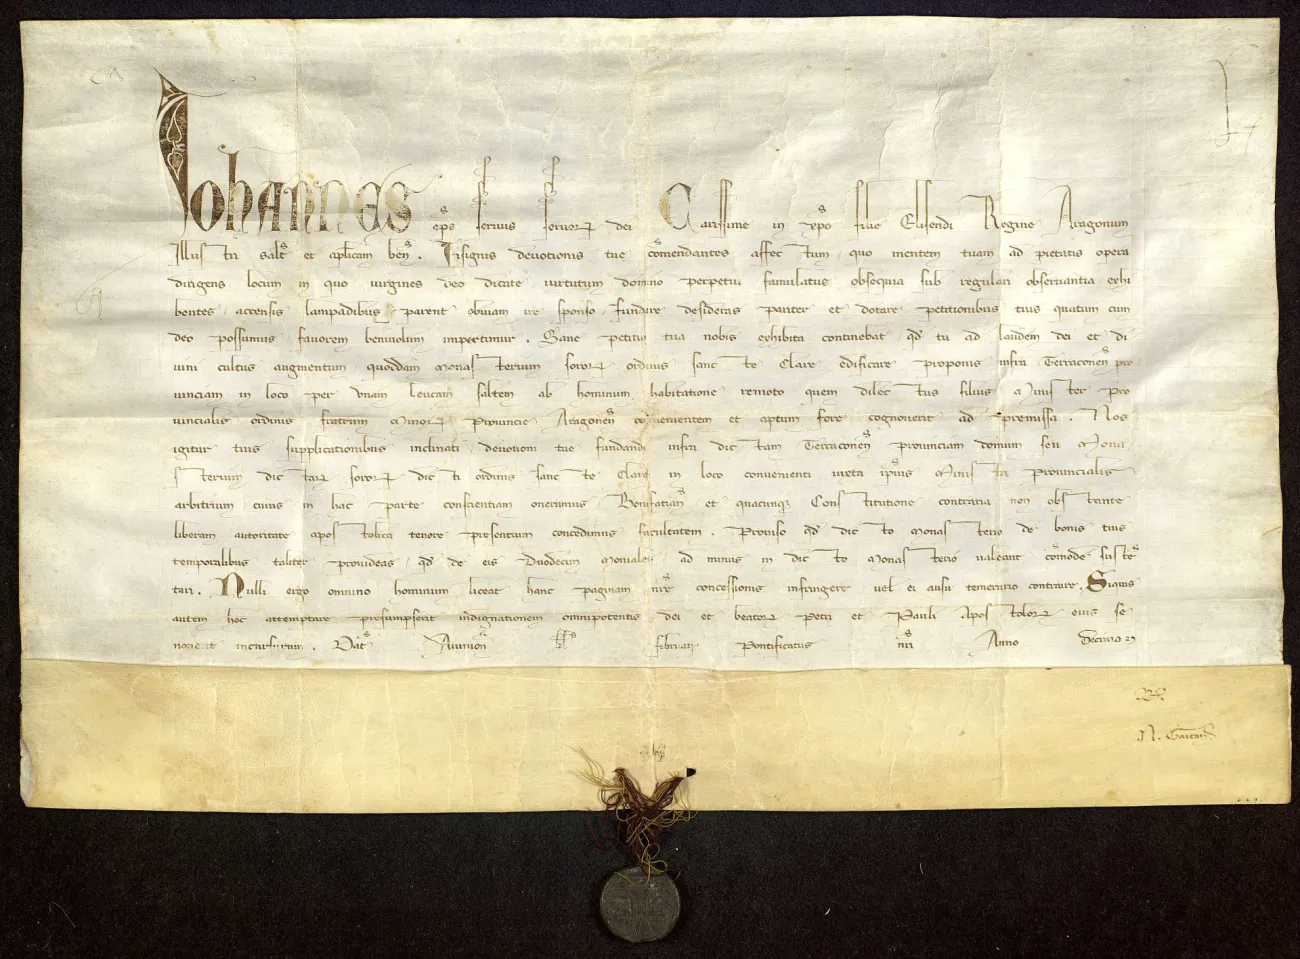 Iohannes ep̄s seruus seruorꝝ dei Carissime in xp̄o filie Elisendi Regine Aragonum
Illustri salt̄ et aplicam ben̄. Insignis deuotionis tue com̄endantes affectum, quo mentem tuam ad pietatis opera
dirigens locum in quo uirgines deo dicate uirtutum domino perpetui famulatus obsequia sub regulari obseruantia exhi
bentes, accensis lampadibus parent obuiam ire sponso fundare desideras pariter et dotare petitionibus tuis quatum cum
deo possumus, fauorem beniuolum impertimur. Sane petitio tua nobis exhibita continebat qđ tu ad laudem dei et di
uini cultus augmentum quoddam Monasterium sororꝝ ordinis sancte Clare edificare proponis infra Terraconen̄ pro
uinciam in loco per unam leucam saltem ab hominum habitatione remoto quem dilectus filius Minister Pro
uincialis ordinis fratrum Minorꝝ Prouincie Aragonen̄ conuenientem et aptum fore cognouerit ad premissa. Nos
igitur tuis supplicationibus inclinati deuotioni tue fundandi infra dictam Terraconen̄ prouinciam domum seu Mona
sterium dictarꝝ sororꝝ dicti ordinis sancte Clare in loco conuenienti iuxta ip̄ius Ministri Prouincialis
arbitrium cuius in hac parte conscientiam oneramus Bonifatian̄ et quacunqꝫ Constitutione contraria non obstante
liberam autoritate apostolica tenore presentium concedimus facultatem. Prouiso qđ dicto Monasterio de bonis tuis
temporalibus taliter prouideas, qđ de eis Duodecim Moniales ad minus in dicto Monasterio ualeant com̄ode suste
tari. Nulli ergo omnino hominum liceat hanc paginam nr̄e concessionis infringere vel ei ausu temerario contraire. Siquis
autem hoc attemptare presumpserit indignationem omnipotentis dei et beatorꝝ Petri et Pauli Apostolorꝝ eius se
nouerit incursurum. Dat̄ Auinion̄ kl̄s februarii Pontificatus nr̄i Anno Decimo
N. Gaietan̄.